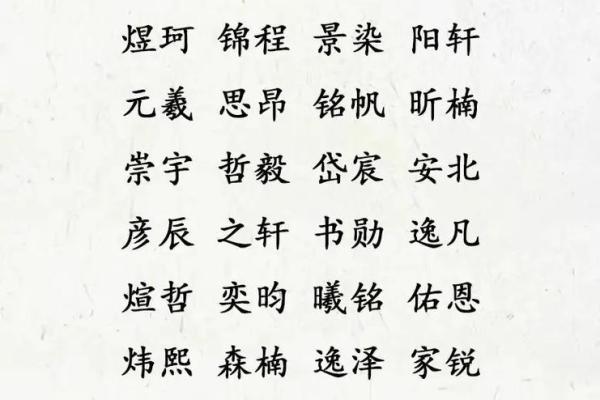 煜珂 锦程 景染 阳轩
元羲 思昂 铭帆 昕楠
崇宇 哲毅 岱宸 安北
彦辰 之轩 书勋 逸凡
煊哲 奕昀 曦铭 佑恩
炜熙 森楠 逸泽 家锐